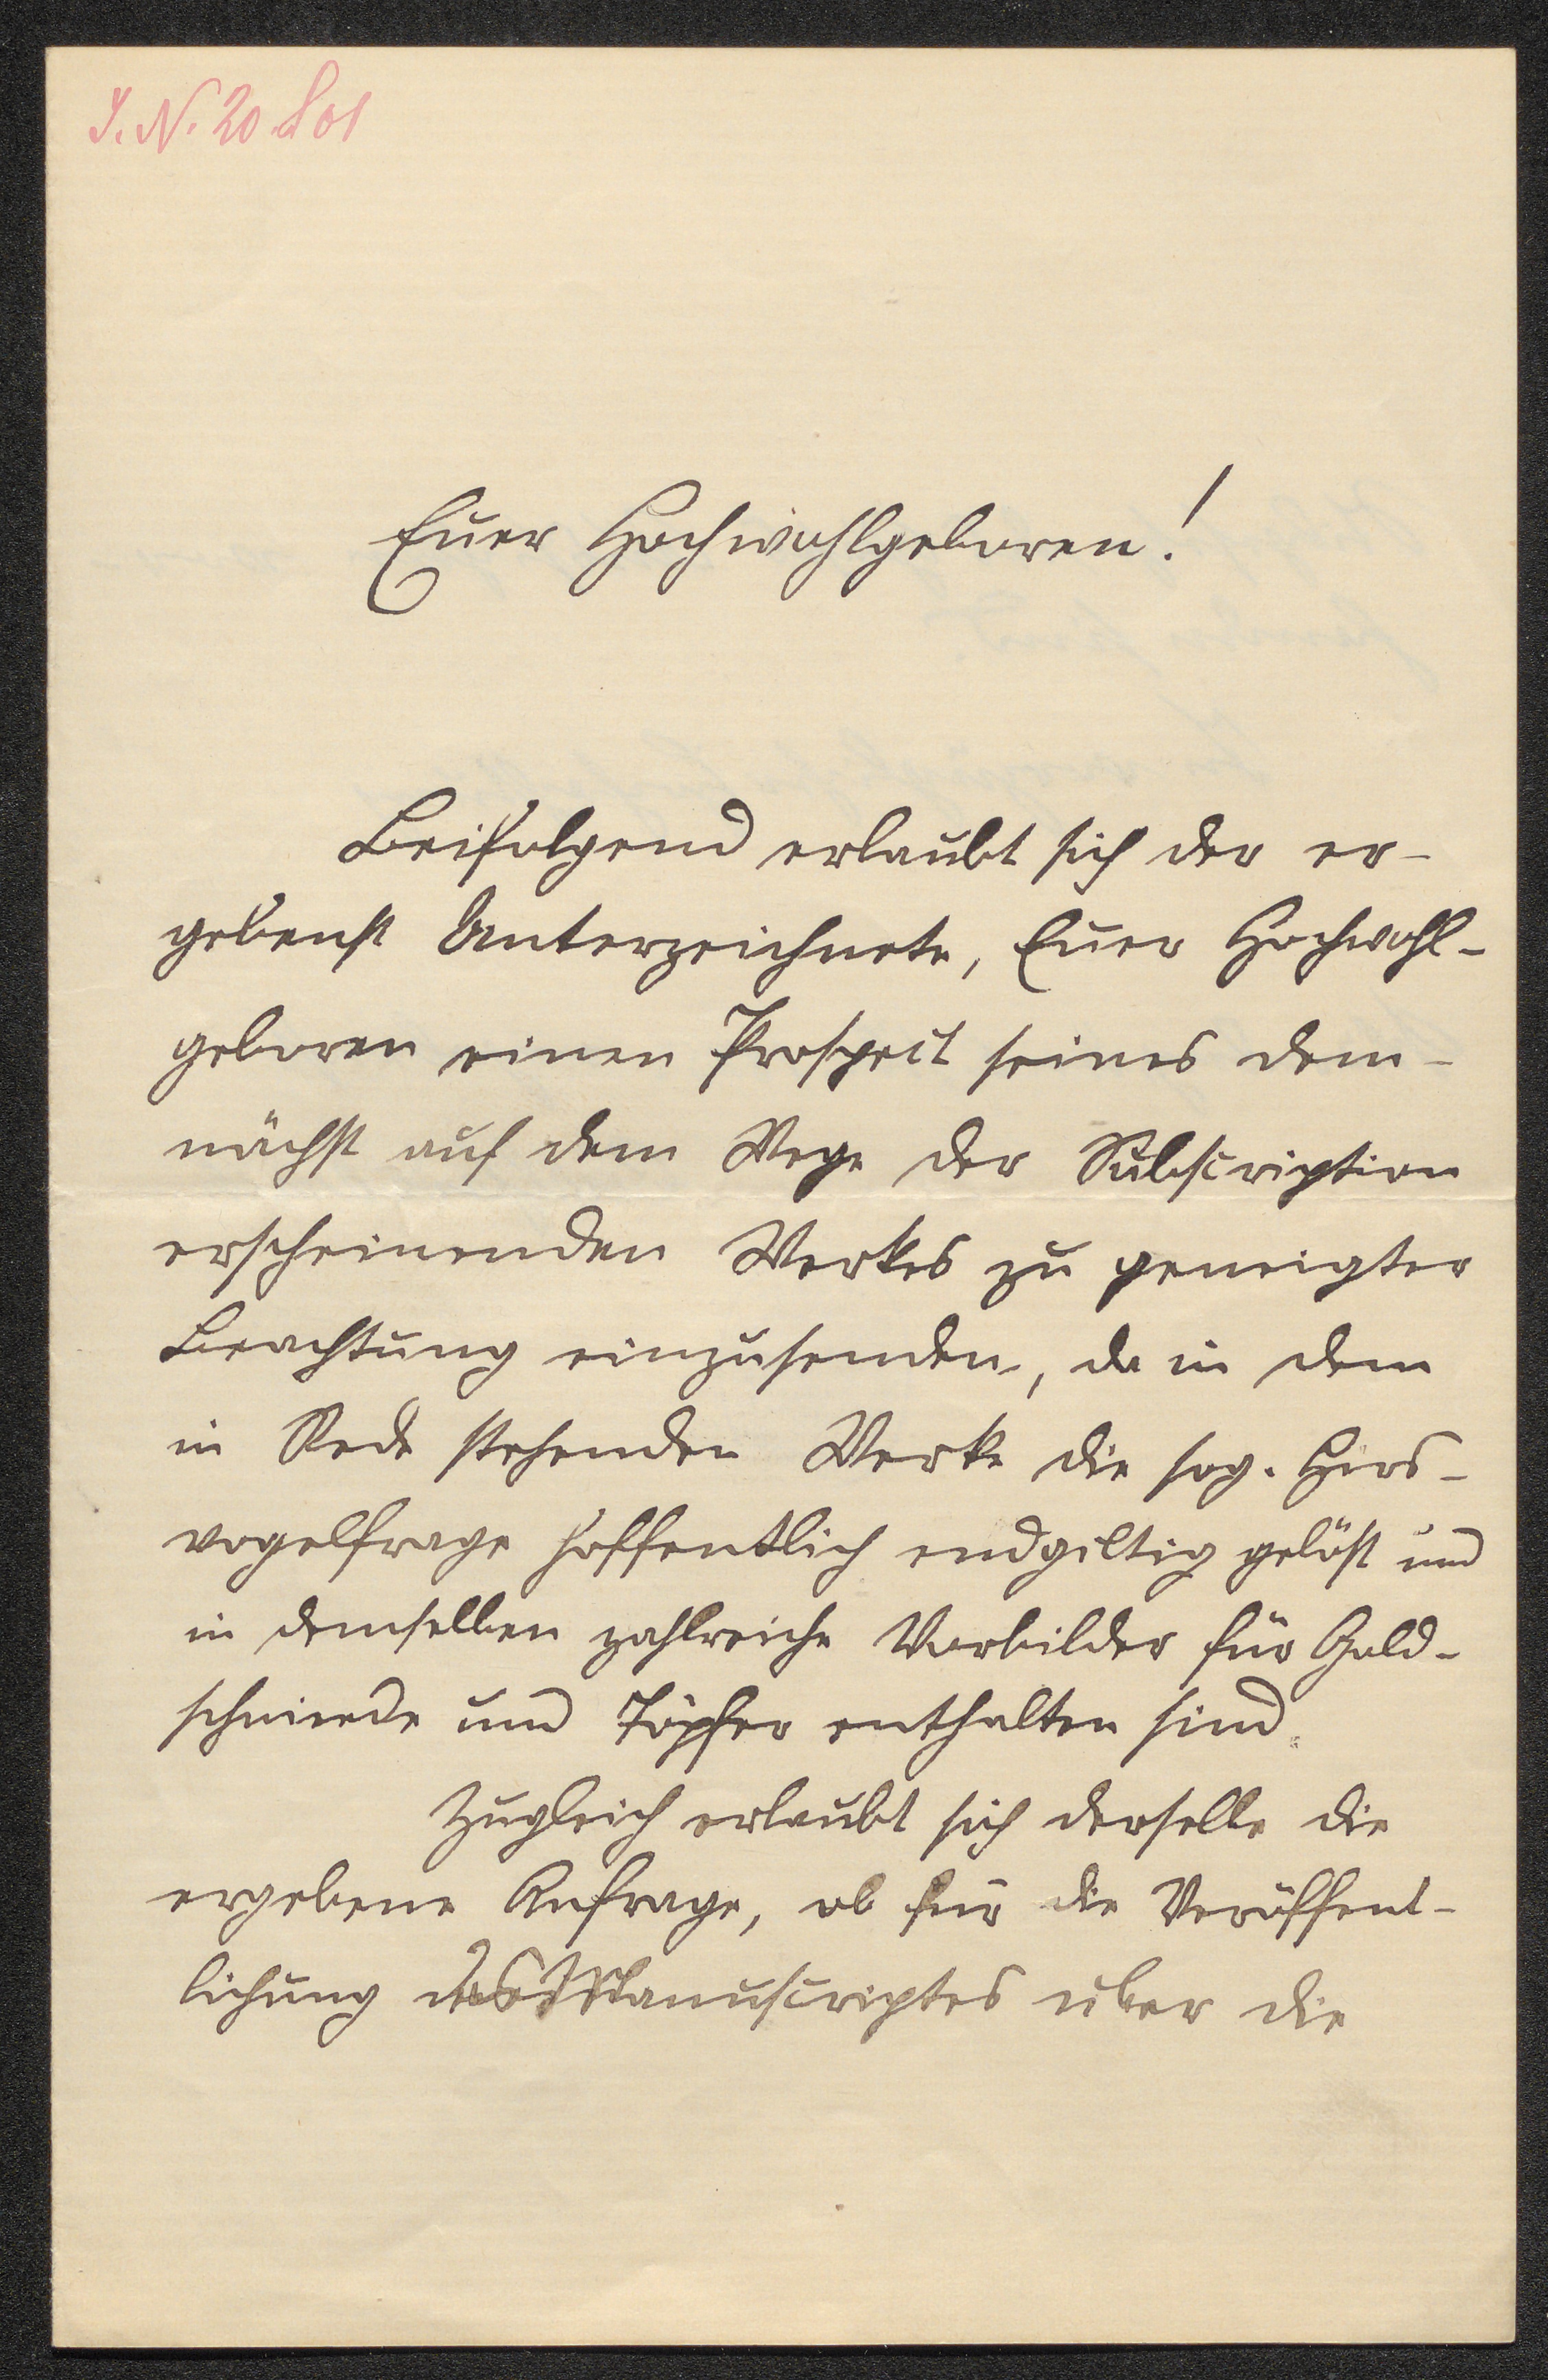 J. N. 20.801
Euer Hochwohlgeboren!
Beifolgend erlaubt sich der er-
gebenst Unterzeichnete, Euer Hochwohl-
geboren einen Prospect seines dem-
nächst auf dem Wege der Subscription
erscheinenden Werkes zu geneigter
Beachtung einzusenden, da in dem
in Rede stehenden Werke die sog. Hirs-
vogelfrage hoffentlich endgiltig gelöst und
in demselben zahlreiche Vorbilder für Gold-
schmiede und Töpfer enthalten sind.
Zugleich erlaubt sich derselbe die
ergebene Anfrage, ob für die Veröffent-
lichung des Manuscriptes über die